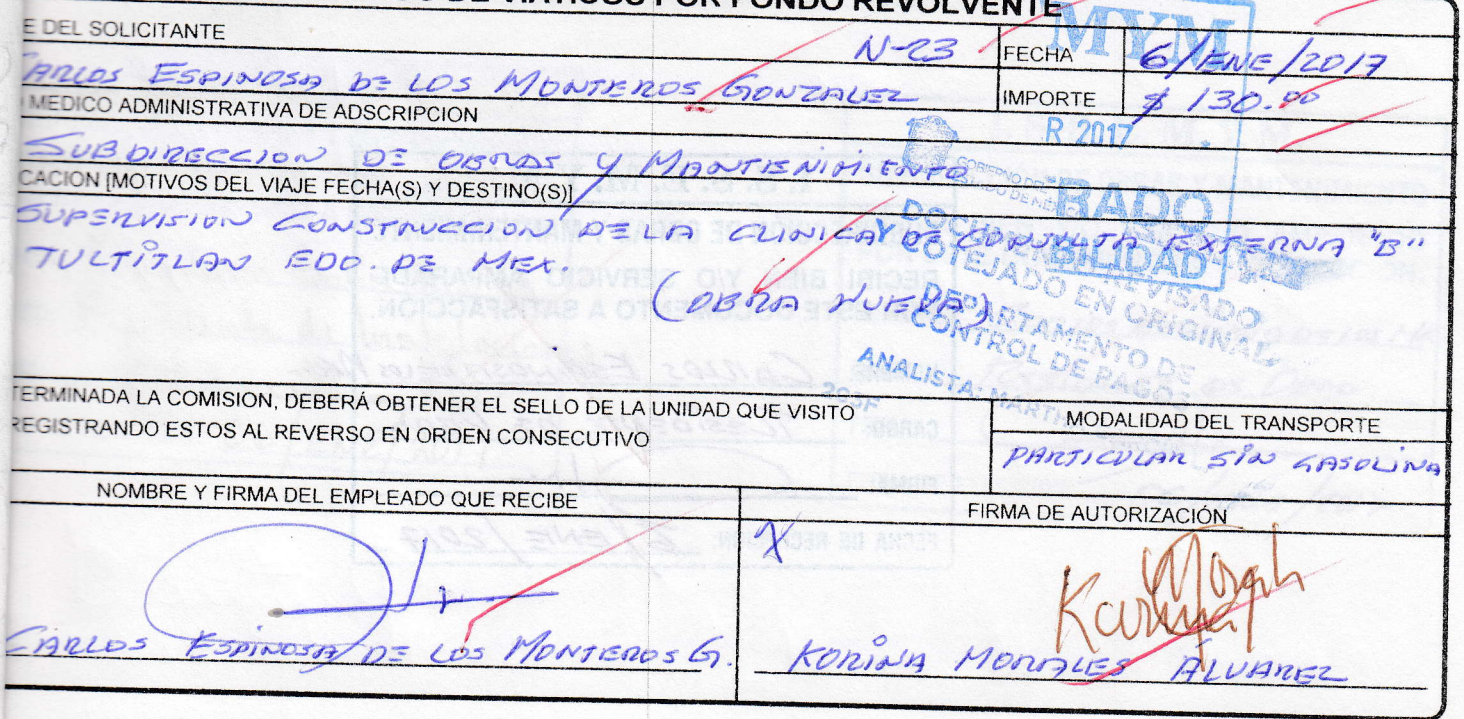 DE VIATICOS POR FONDO REVOLVENTE
MYM
E DEL SOLICITANTE
N-23
FECHA 6/ENE/2017
CARLOS ESPINOSA DE LOS MONTEROS GONZALEZ
IMPORTE $ 130.00
MEDICO ADMINISTRATIVA DE ADSCRIPCION
R 2017
SUBDIRECCION DE OBRAS Y MANTENIMIENTO
CACION [MOTIVOS DEL VIAJE FECHA(S) Y DESTINO(S)]
RADO
BILIDAD
SUPERVISION CONSTRUCCION DE LA CLINICA DE CONSULTA EXTERNA "B"
TULTITLAN EDO. DE MEX.
(OBRA NUEVA)
Y COTEJADO EN ORIGINAL
DEPARTAMENTO DE
CONTROL DE PAGOS
TERMINADA LA COMISION, DEBERÁ OBTENER EL SELLO DE LA UNIDAD QUE VISITO
REGISTRANDO ESTOS AL REVERSO EN ORDEN CONSECUTIVO
MODALIDAD DEL TRANSPORTE
PARTICULAR SIN GASOLINA
NOMBRE Y FIRMA DEL EMPLEADO QUE RECIBE
FIRMA DE AUTORIZACIÓN
X
CARLOS ESPINOSA DE LOS MONTEROS G.
KORINA MORALES ALVAREZ